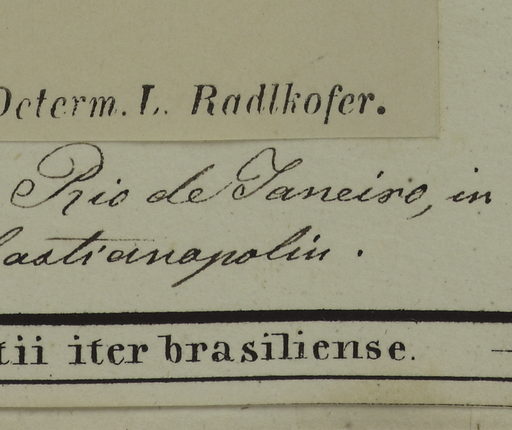 Determ. L. Radlkofer.
Rio de Janeiro, in
bastianopolin.
tii iter brasiliense.